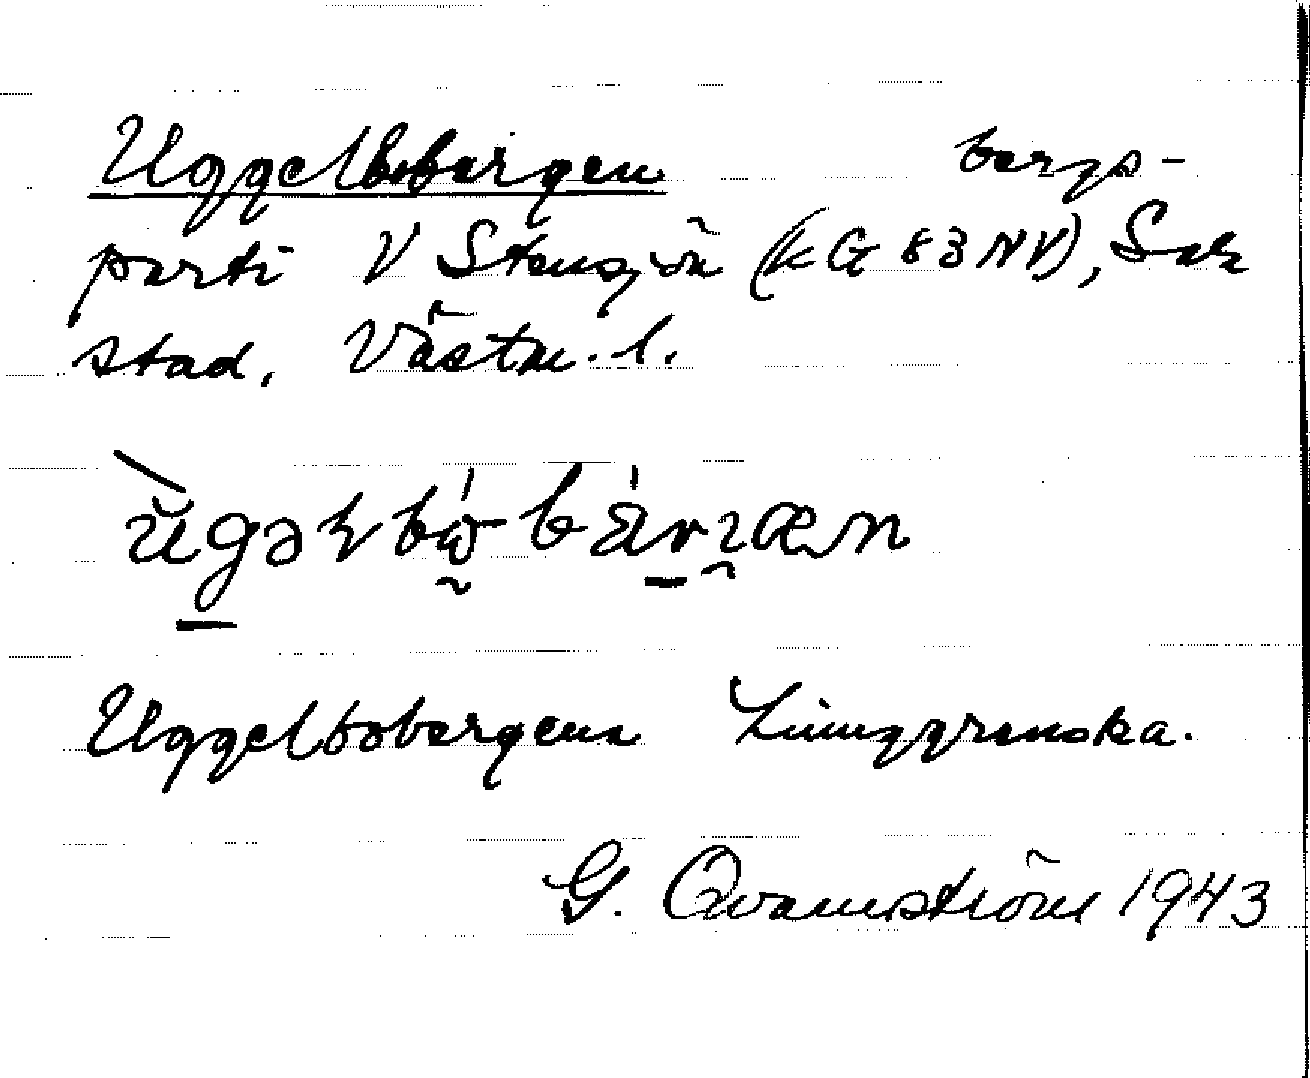 Uggelbobergen bergs-
parti V Stensjön (k G 83 NV), Sala
stad, Västm. l.
Uggelbobergen Ljunggrenska.
G. Qvarnström 1943